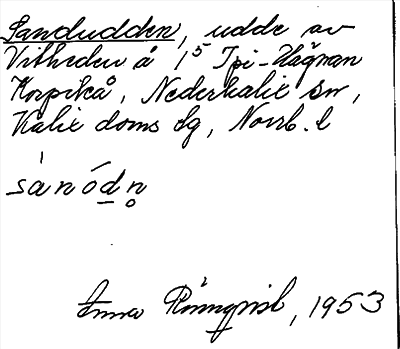 Sandudden, udde av
Vitheden å 15 Tpi-Hägnan
Korpikå, Nederkalix sn,
Kalix doms dg, Norrb. l
sànóḏn̥
Anna Rönnqvist, 1953